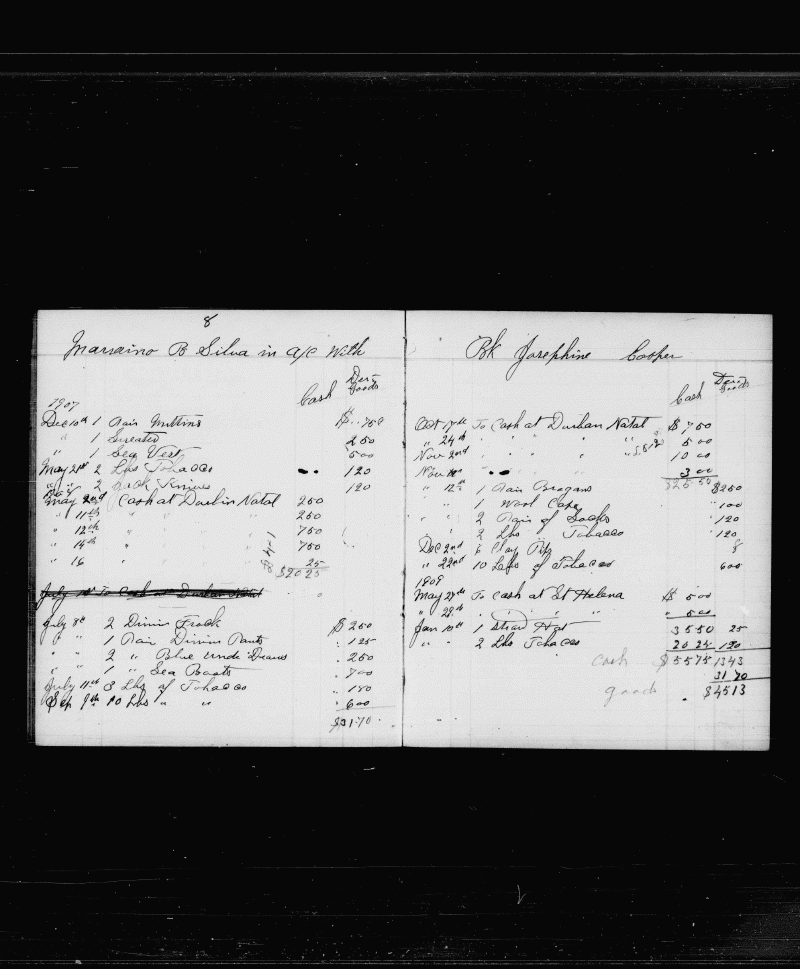 8
Marsaino B Silva in a/c With
Cash Dery Goods
1907
Dec 10th 1 Pair Mittins $ .. 75
" 1 Sweater 2 50
" 1 Sea Vest 5 00
May 21st 2 Lbs Tobacco 1 20
" " 2 Jack Knives 1 20
May 2nd Cash at Durbin Natal 2 50
" 11th " " " 2 50
" 12th " 7 50
" 14th " 7 50
" 16 25
$20 25
July 1st To Cash at Durban Natal
July 8th 2 Dinim Frock $ 2 50
" " 1 Pair Dinim Pants " 1 25
" " 2 " Blue Under Drawes " 2 50
" " 1 " Sea Boots
July 11th 3 Lbs of Tobacco " 1 80
Sep 9th 10 Lbs " " " 6 00
$31.70
Bk Josephine Cooper
Cash Dery Goods
Oct 17th To Cash at Durban Natal $ 7 50
" 24th " " " " " 5 00
Nov 2nd " " " " 10 00
Nov 10th " 3 00
$25 50
" 12th 1 Pair Brogans $2 50
" " 1 Wool Cap " 1 00
" " 2 Pair of Socks " 1 20
" " 2 Lbs Tobacco " 1 20
Dec 2nd 6 Clay Pip 8
" 22nd 10 Lbs of Tobacco 6 00
1909
May 27th To Cash at St Helena $ 5 00
" 28th " " " " " 5 00
Jan 10th 1 Straw Hat 35 50 25
" " 2 Lbs Tobacco 20 24 1 20
cash $55 75 13 43
31 70
goods $45 13